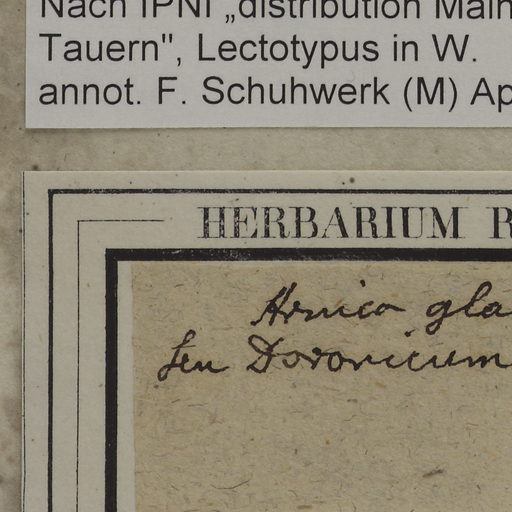 Nach IPNI „distribution Main
Tauern", Lectotypus in W.
annot. F. Schuhwerk (M) Ap
HERBARIUM R
Arnica gla
seu Doronicum